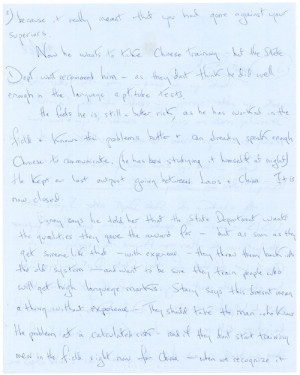 because it really meant that you had gone against your
superiors
Now he wants to take Chinese training - but the State
Dept will recommend him - as they don't think he did well
enough in the language aptitude tests.
He feels he is still a better risk, as he has worked in the
field & knows the problems better & can already speak enough
Chinese to communicate, (he has been studying it himself at night)
He kept an outpost going between Laos & China It is
now closed
says he told her that the State Department wants
the qualities they gave the award for - but as soon as they
get someone like that - with experience - they throw them back into
the old system - and want to be sure they train people who
will get high language marks. says this doesn't mean
a thing without experience - They should take the man who knows
the problems at a calculated risk - and if they don't start training
men in the field right now for China - when we recognize it